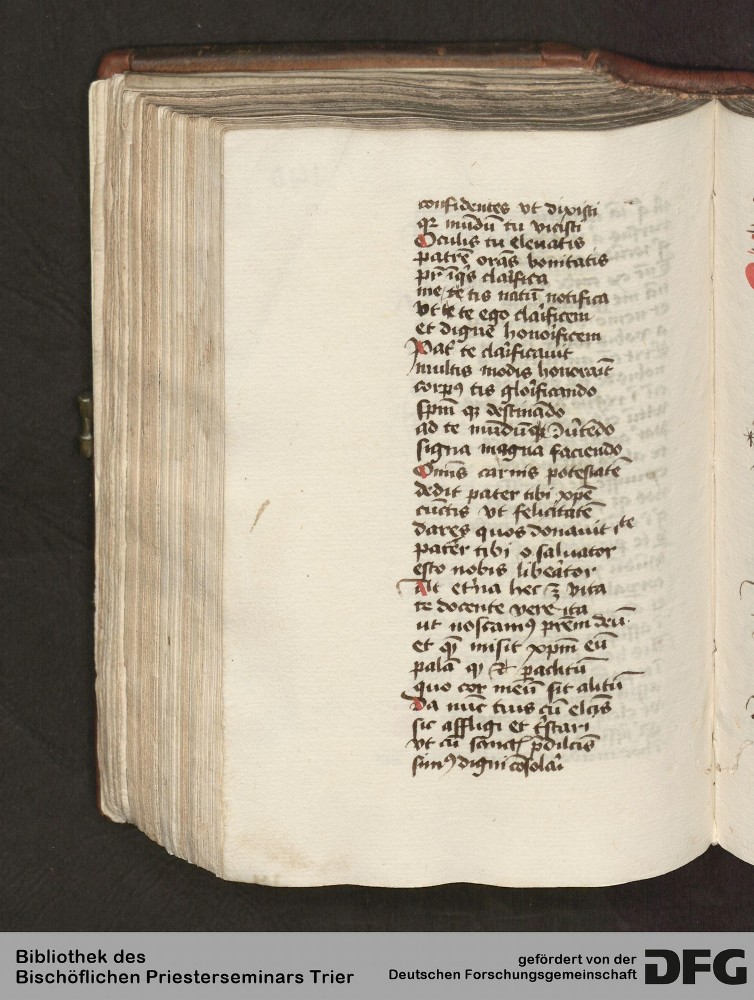 confidentes vt dixisti
qꝛ mūdū tu vicisti
Oculis tu eleuatis
patrē orās bonitatis
me te tis natū notifica
vt te te ego clarificem
et digne honorificem
Pat̄ te clarificauit
multis modis honorauit
corpꝰ tis glorificando
sp̄m qꝫ destinādo
ad te mūdūqꝫ
signa magna faciendo
Omīs carnis potestatē
dedit pater tibi xpē
cūctis vt felicitatē
dares quos donauit iste
pater tibi o saluator
esto nobis liberator
Ait et̄na hec ē vita
te docente vere ita
ut noscamꝰ pr̄em deū
et quē misit xp̄m eū
palā
quo cor meū sit alitū
Da nūc tuus cū
sic affligi et t̄stari
vt cū
simꝰ digni cōsolari
Bibliothek des
Bischöflichen Priesterseminars Trier
gefördert von der
Deutschen Forschungsgemeinschaft
DFG